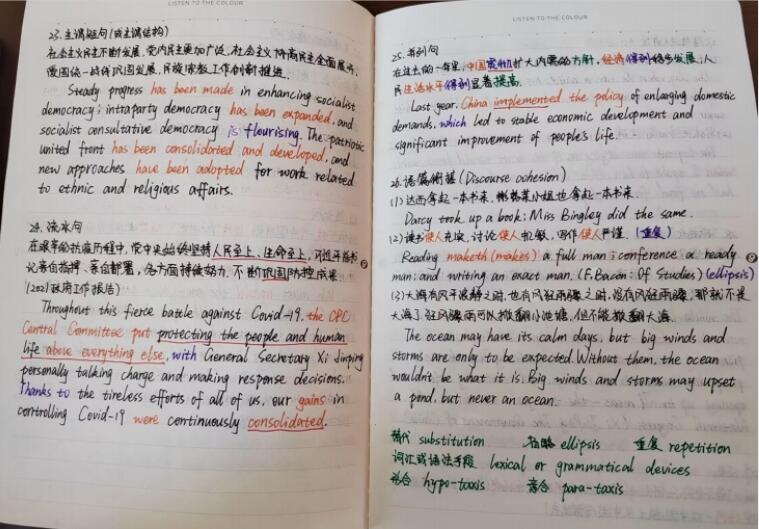 LISTEN TO THE COLOUR
23. 主谓短句(或主谓结构)
社会主义民主不断发展,党内民主更加广泛,社会主义协商民主全面展开,
爱国统一战线巩固发展,民族宗教工作创新推进。
Steady progress has been made in enhancing socialist
democracy; intraparty democracy has been expanded, and
socialist consultative democracy is flourising. The patriotic
united front has been consolidated and developed, and
new approaches have been adopted for work related
to ethnic and religious affairs.
24. 流水句
在艰辛的抗疫历程中,党中央始终坚持人民至上、生命至上,习近平总书
记亲自指挥、亲自部署,各方面持续努力,不断巩固防控成果
(2021政府工作报告)
Throughout this fierce battle against Covid-19, the CPC
Central Committee put protecting the people and human
life above everything else, with General Secretary Xi Jinping
personally talking charge and making response decisions.
Thanks to the tireless efforts of all of us, our gains in
controlling Covid-19 were continuously consolidated.
LISTEN TO THE COLOUR
25. 并列句
在过去的一年里,中国贯彻扩大内需的方针,经济得到稳步发展,人
民生活水平得到显著提高。
Last year, China implemented the policy of enlarging domestic
demands, which led to stable economic development and
significant improvement of people's life.
26. 语篇衔接(Discourse cohesion)
(1) 达西拿起一本书来,彬格莱小姐也拿起一本书来.
Darcy took up a book; Miss Bingley did the same.
(2) 读书使人充实,讨论使人机敏,写作使人严谨. (重复)
Reading maketh (makes) a full man; conference a ready
man; and writing an exact man. (F.Bacon: Of Studies) (ellipsis)
(3) 大海有风平浪静之时,也有风狂雨骤之时,没有风狂雨骤,那就不是
大海了.狂风骤雨可以掀翻小池塘,但不能掀翻大海.
The ocean may have its calm days, but big winds and
storms are only to be expected. Without them, the ocean
wouldn't be what it is. Big winds and storms may upset
a pond, but never an ocean.
替代 substitution 省略 ellipsis 重复 repetition
词汇或语法手段 lexical or grammatical devices
形合 hypo-taxis 意合 para-taxis